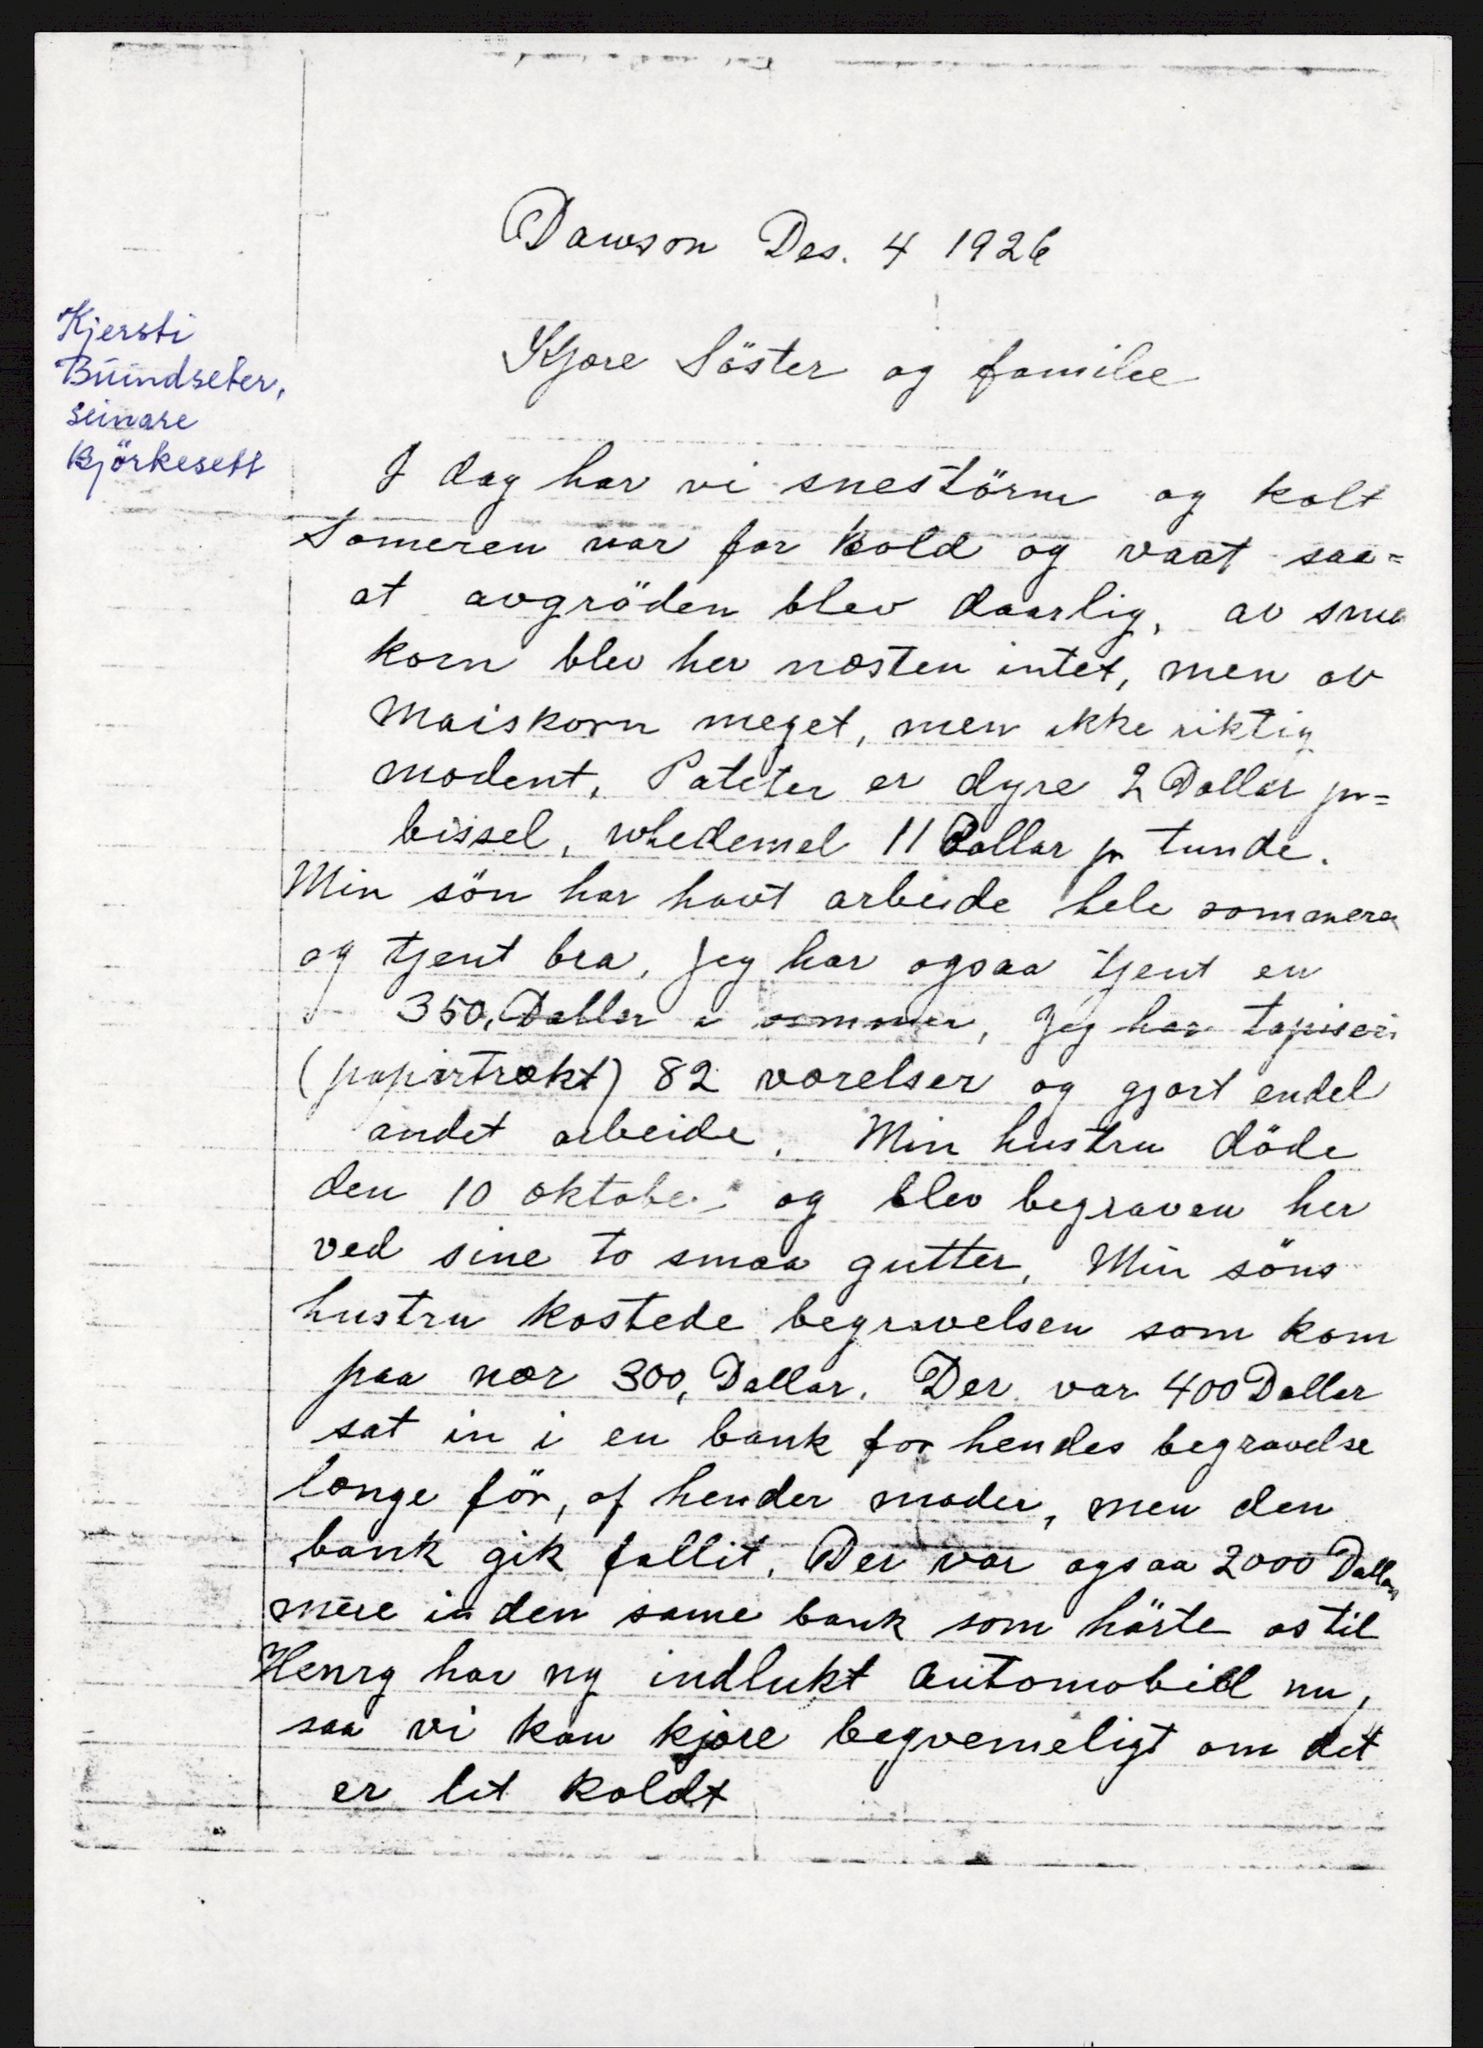 Dawson Des. 4 1926
Kjersti
Buundseter,
seinare
Bjørkesett
Kjære Söster og familee
I dag har vi snestörm og kalt
Someren var for kold og vaat saa=
at avgröden blev daarlig, av smaa
korn blev her næsten intet, men av
maiskorn meget, men ikke riktig
modent, Pateter er dyre 2 Dollar pr=
bissel, whedemel 11 Dollar pr tunde.
Min sön har havt arbeide hele sommeren
og tjent bra, jeg har ogsaa tjent en
350, Dollar i sommer, jeg har tapiseri
(papirtrækt) 82 værelser og gjort endel
andet arbeide. Min hustru döde
den 10 oktober og blev begraven her
ved sine to smaa gutter, Min söns
hustru kostede begravelsen som kom
paa nær 300, Dallar. Der var 400 Dallar
sat in i en bank for hendes begravelse
længe för, af hender moder, men den
bank gik fallit. Der var ogsaa 2000 Dallar
mere in den same bank som hörte os til
Henry har ny indlukt automobill nu,
saa vi kan kjöre begvemeligt om det
er lit koldt